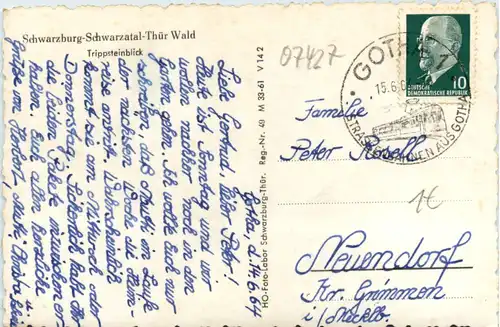 Schwarzburg-Schwarzatal-Thür Wald
Trippsteinblick
07427
GOTHA 1
15.6.64
STRASSENBAHNEN AUS GOTHA
10
DEUTSCHE
DEMOKRATISCHE REPUBLIK
Gotha, d. 14.6.64
Liebe Gertrud, lieber Peter!
Heute ist Sonntag und wir
wollen noch in den
Garten gehen. Ich wollte Euch nur
schreiben, daß Mutti im Laufe
der nächsten Woche die Heim-
reise antritt. Wahrscheinlich
kommt sie am Mittwoch oder
Donnerstag. Hoffentlich habt Ihr
die beiden Pakete inzwischen er-
halten. Euch allen herzliche
Grüße von Herbert, u.
HO-Foto-Labor Schwarzburg-Thür. Reg.-Nr. 49 M 33-61 V 142
Familie
Peter
1€
Neuendorf
Kr. Grimmen
i/Mecklb.